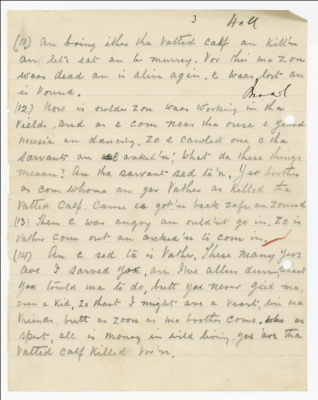 3 Hall
(11) An bring ither tha Vatted Calf an Kill'n
an let's eat an be murry. Vor this ma zon
waas dead an is alive again. e waas lost an
is Vound.
(12) Now is owlder zon waas working in tha
Vields, and as e com near tha ouse e yeard
music an dancing, zo e cawled one o tha
sarvants an axed'n; What do these things
meann? An tha sarvant sed to'n, Yer brother
as com whome an yer Vather as Killed tha
Vatted Calf. Cause es got'n back zafe an zound
(13) Then e was angry an ouldn't go in. Zo is
Vather com out an axked'n to com in.
(14) An e sed to is Vather, These many Years
ave I sarved you, an I've allus dun, what
you tould ma to do, butt you never gied ma,
even a Kid, Zo thaat I might ave a Veast, wie ma
Vriends, butt as zoon as ma brother coms. who as
spent, all is money in wild living, you 'ave tha
Vatted Calf Killed Vor'n.